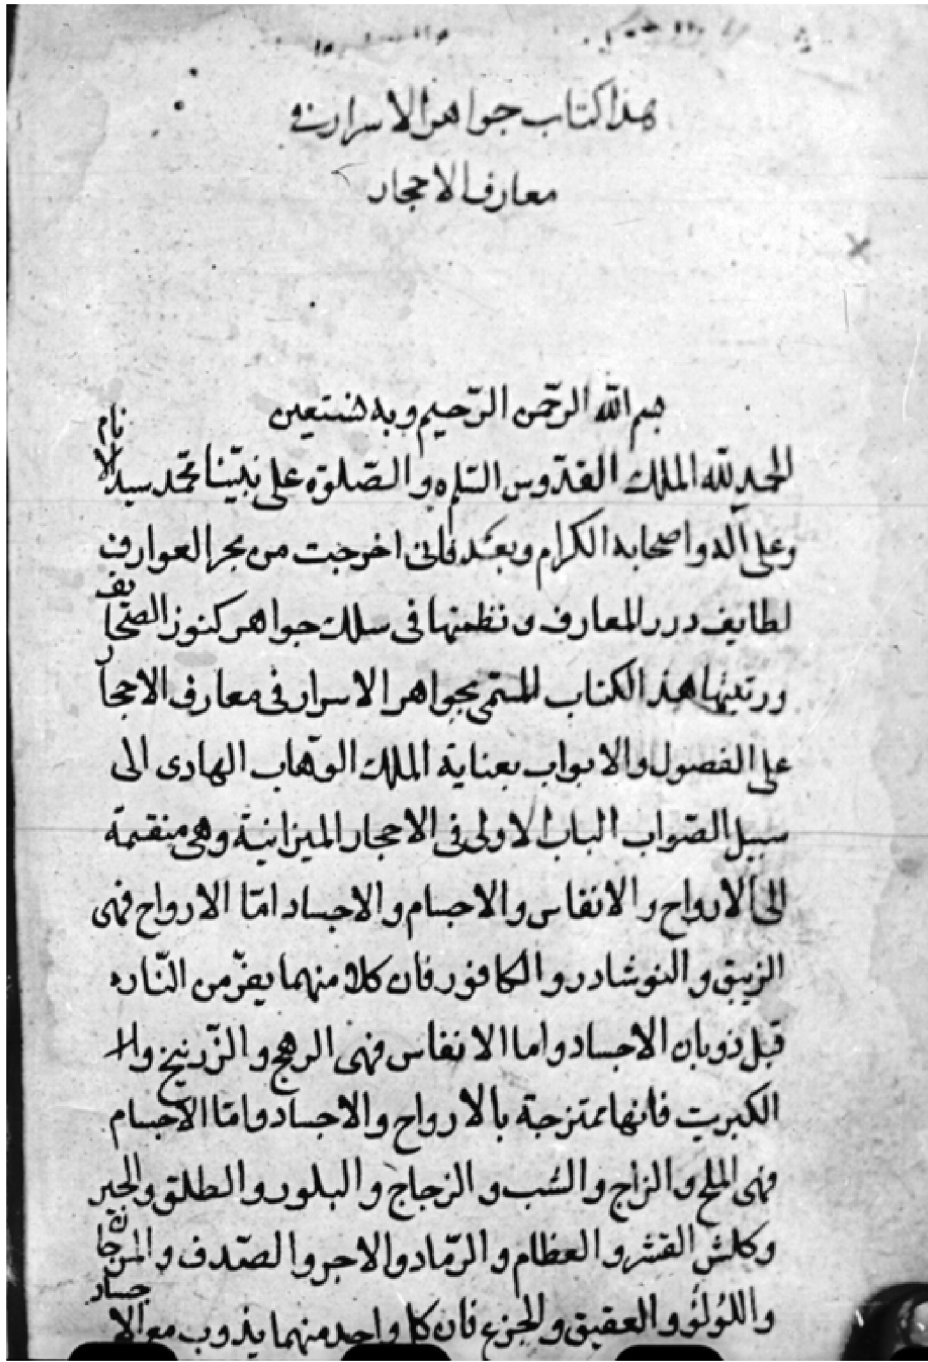 هذا كتاب جواهر الاسرار فى
معارف الاحجار
بسم الله الرّحمن الرّحيم وبه نستعين
الحمد لله الملك القدّوس السّلام والصّلوة على نبيّنا محمّد سيد الانام
وعلى اله واصحابه الكرام وبعد فانى اخرجت من بحر العوارف
لطايف درر المعارف ونظمتها فى سلك جواهر كنوز الصّحايف
ورتبتها هذ الكتاب المسمّى بجواهر الاسرار فى معارف الاحجار
على الفصول والابواب بعناية الملك الوهّاب الهادى الى
سبيل الصّواب الباب الاولى فى الاحجار الميزانية وهى منقسمة
الى الارواح والانفاس والاجسام والاجساد امّا الارواح فهى
الزيبق والنوشادر والكافور فان كلا منهما يفرّ من النّار
قبل ذوبان الاجساد واما الانفاس فهى الرهج والزّرنيخ والا
الكبريت فانها ممتزجة بالارواح والاجساد وامّا الاجسام
فهى الملح والزاج والشب والزجاج والبلور والطلق والجير
وكلس القشر والعظام والرّماد والاجر والصّدف والمرجان
واللؤلؤ والعقيق والجزع فان كل واحد منهما يذوب مع الاجساد